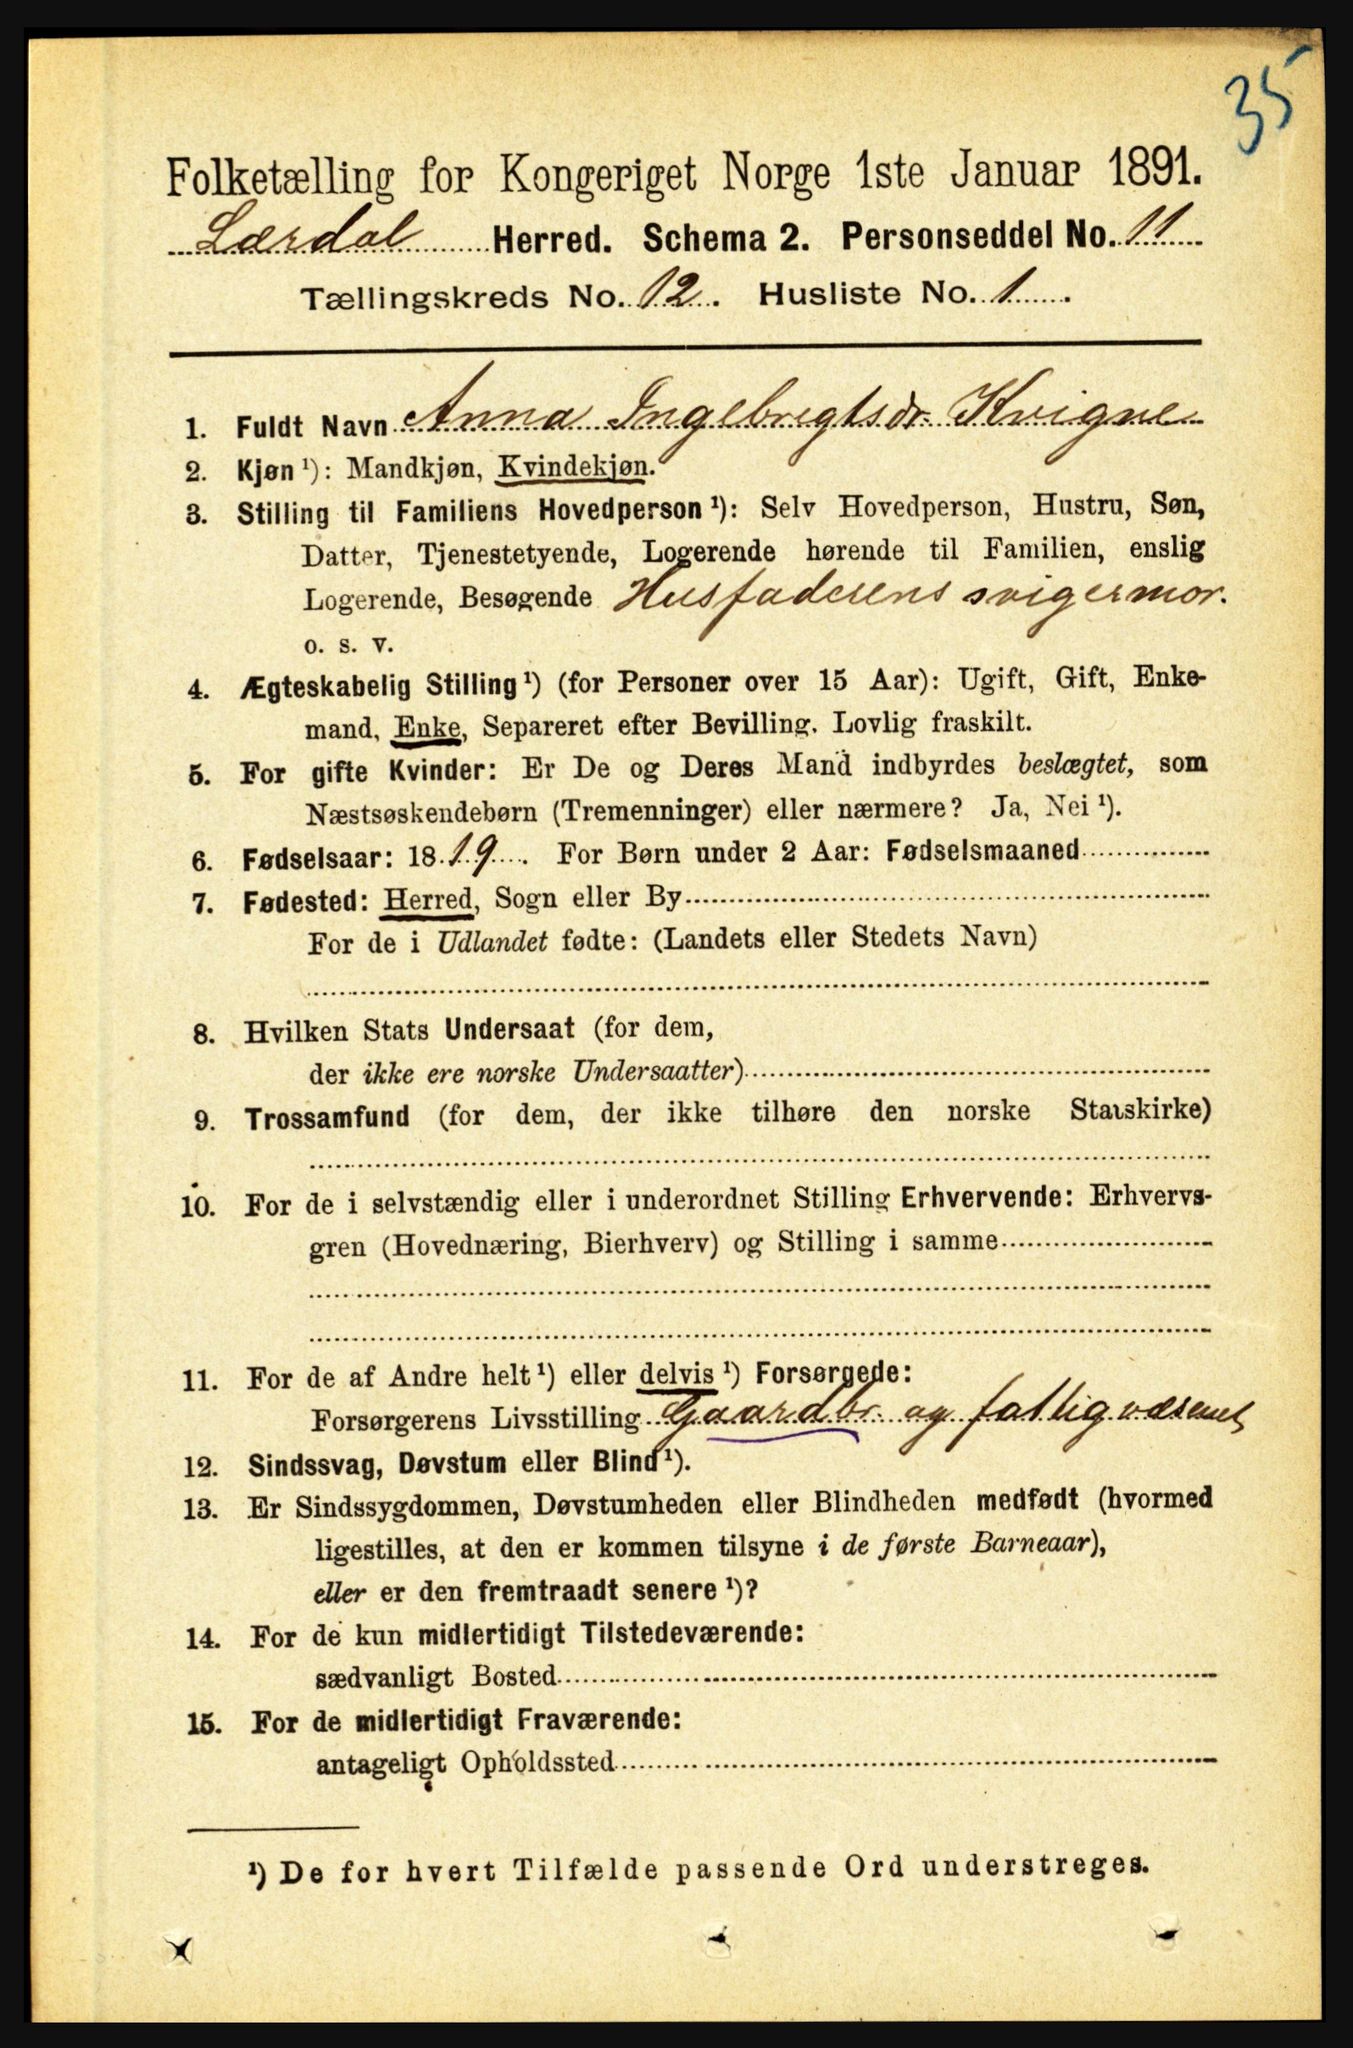 35
Folketælling for Kongeriget Norge 1ste Januar 1891.
Lærdal Herred. Schema 2. Personseddel No. 11
Tællingskreds No. 12. Husliste No. 1.
1. Fuldt Navn Anna Ingebrigtsdr. Kvigne
2. Kjøn ¹): Mandkjøn, Kvindekjøn.
3. Stilling til Familiens Hovedperson ¹): Selv Hovedperson, Hustru, Søn,
Datter, Tjenestetyende, Logerende hørende til Familien, enslig
Logerende, Besøgende Husfaderens svigermor.
o. s. v.
4. Ægteskabelig Stilling ¹) (for Personer over 15 Aar): Ugift, Gift, Enke-
mand, Enke, Separeret efter Bevilling. Lovlig fraskilt.
5. For gifte Kvinder: Er De og Deres Mand indbyrdes beslægtet, som
Næstsøskendebørn (Tremenninger) eller nærmere? Ja, Nei ¹).
6. Fødselsaar: 1819. For Børn under 2 Aar: Fødselsmaaned
7. Fødested: Herred, Sogn eller By
For de i Udlandet fødte: (Landets eller Stedets Navn)
8. Hvilken Stats Undersaat (for dem,
der ikke ere norske Undersaatter)
9. Trossamfund (for dem, der ikke tilhøre den norske Statskirke)
10. For de i selvstændig eller i underordnet Stilling Erhvervende: Erhvervs-
gren (Hovednæring, Bierhverv) og Stilling i samme
11. For de af Andre helt ¹) eller delvis ¹) Forsørgede:
Forsørgerens Livsstilling Gaardbr. og fattigvæsenet
12. Sindssvag, Døvstum eller Blind ¹).
13. Er Sindssygdommen, Døvstumheden eller Blindheden medfødt (hvormed
ligestilles, at den er kommen tilsyne i de første Barneaar),
eller er den fremtraadt senere ¹)?
14. For de kun midlertidigt Tilstedeværende:
sædvanligt Bosted
15. For de midlertidigt Fraværende:
antageligt Opholdssted
¹) De for hvert Tilfælde passende Ord understreges.